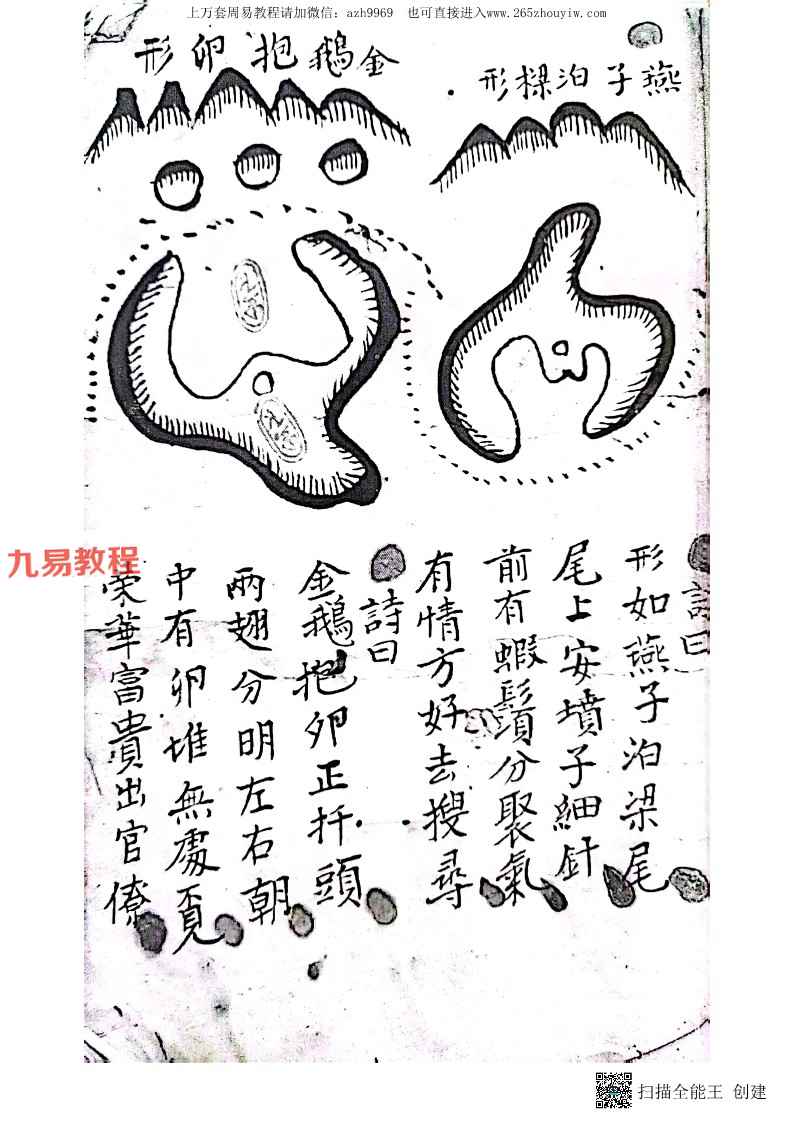 上万套周易教程请加微信：azh9969　也可直接进入www.265zhouyiw.com
燕子泊樑形
詩曰
形如燕子泊梁尾
尾上安墳子細針
前有蝦鬚分聚氣
有情方好去搜尋
金鵝抱卵形
詩曰
金鵝抱卵正扦頭
兩翅分明左右朝
中有卵堆無處覓
荣華富貴出官僚
九易教程
扫描全能王 创建